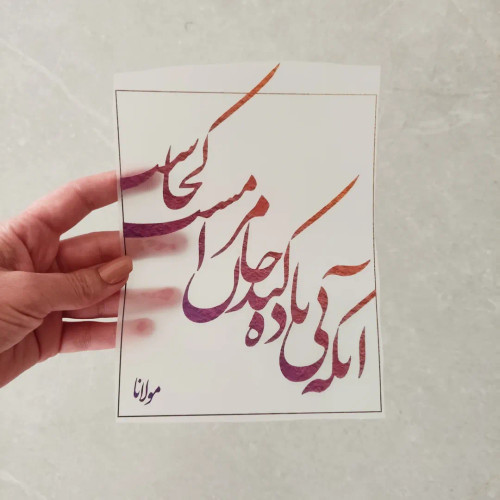 آنکه بی باده کند جان مرا مست کجاست
مولانا